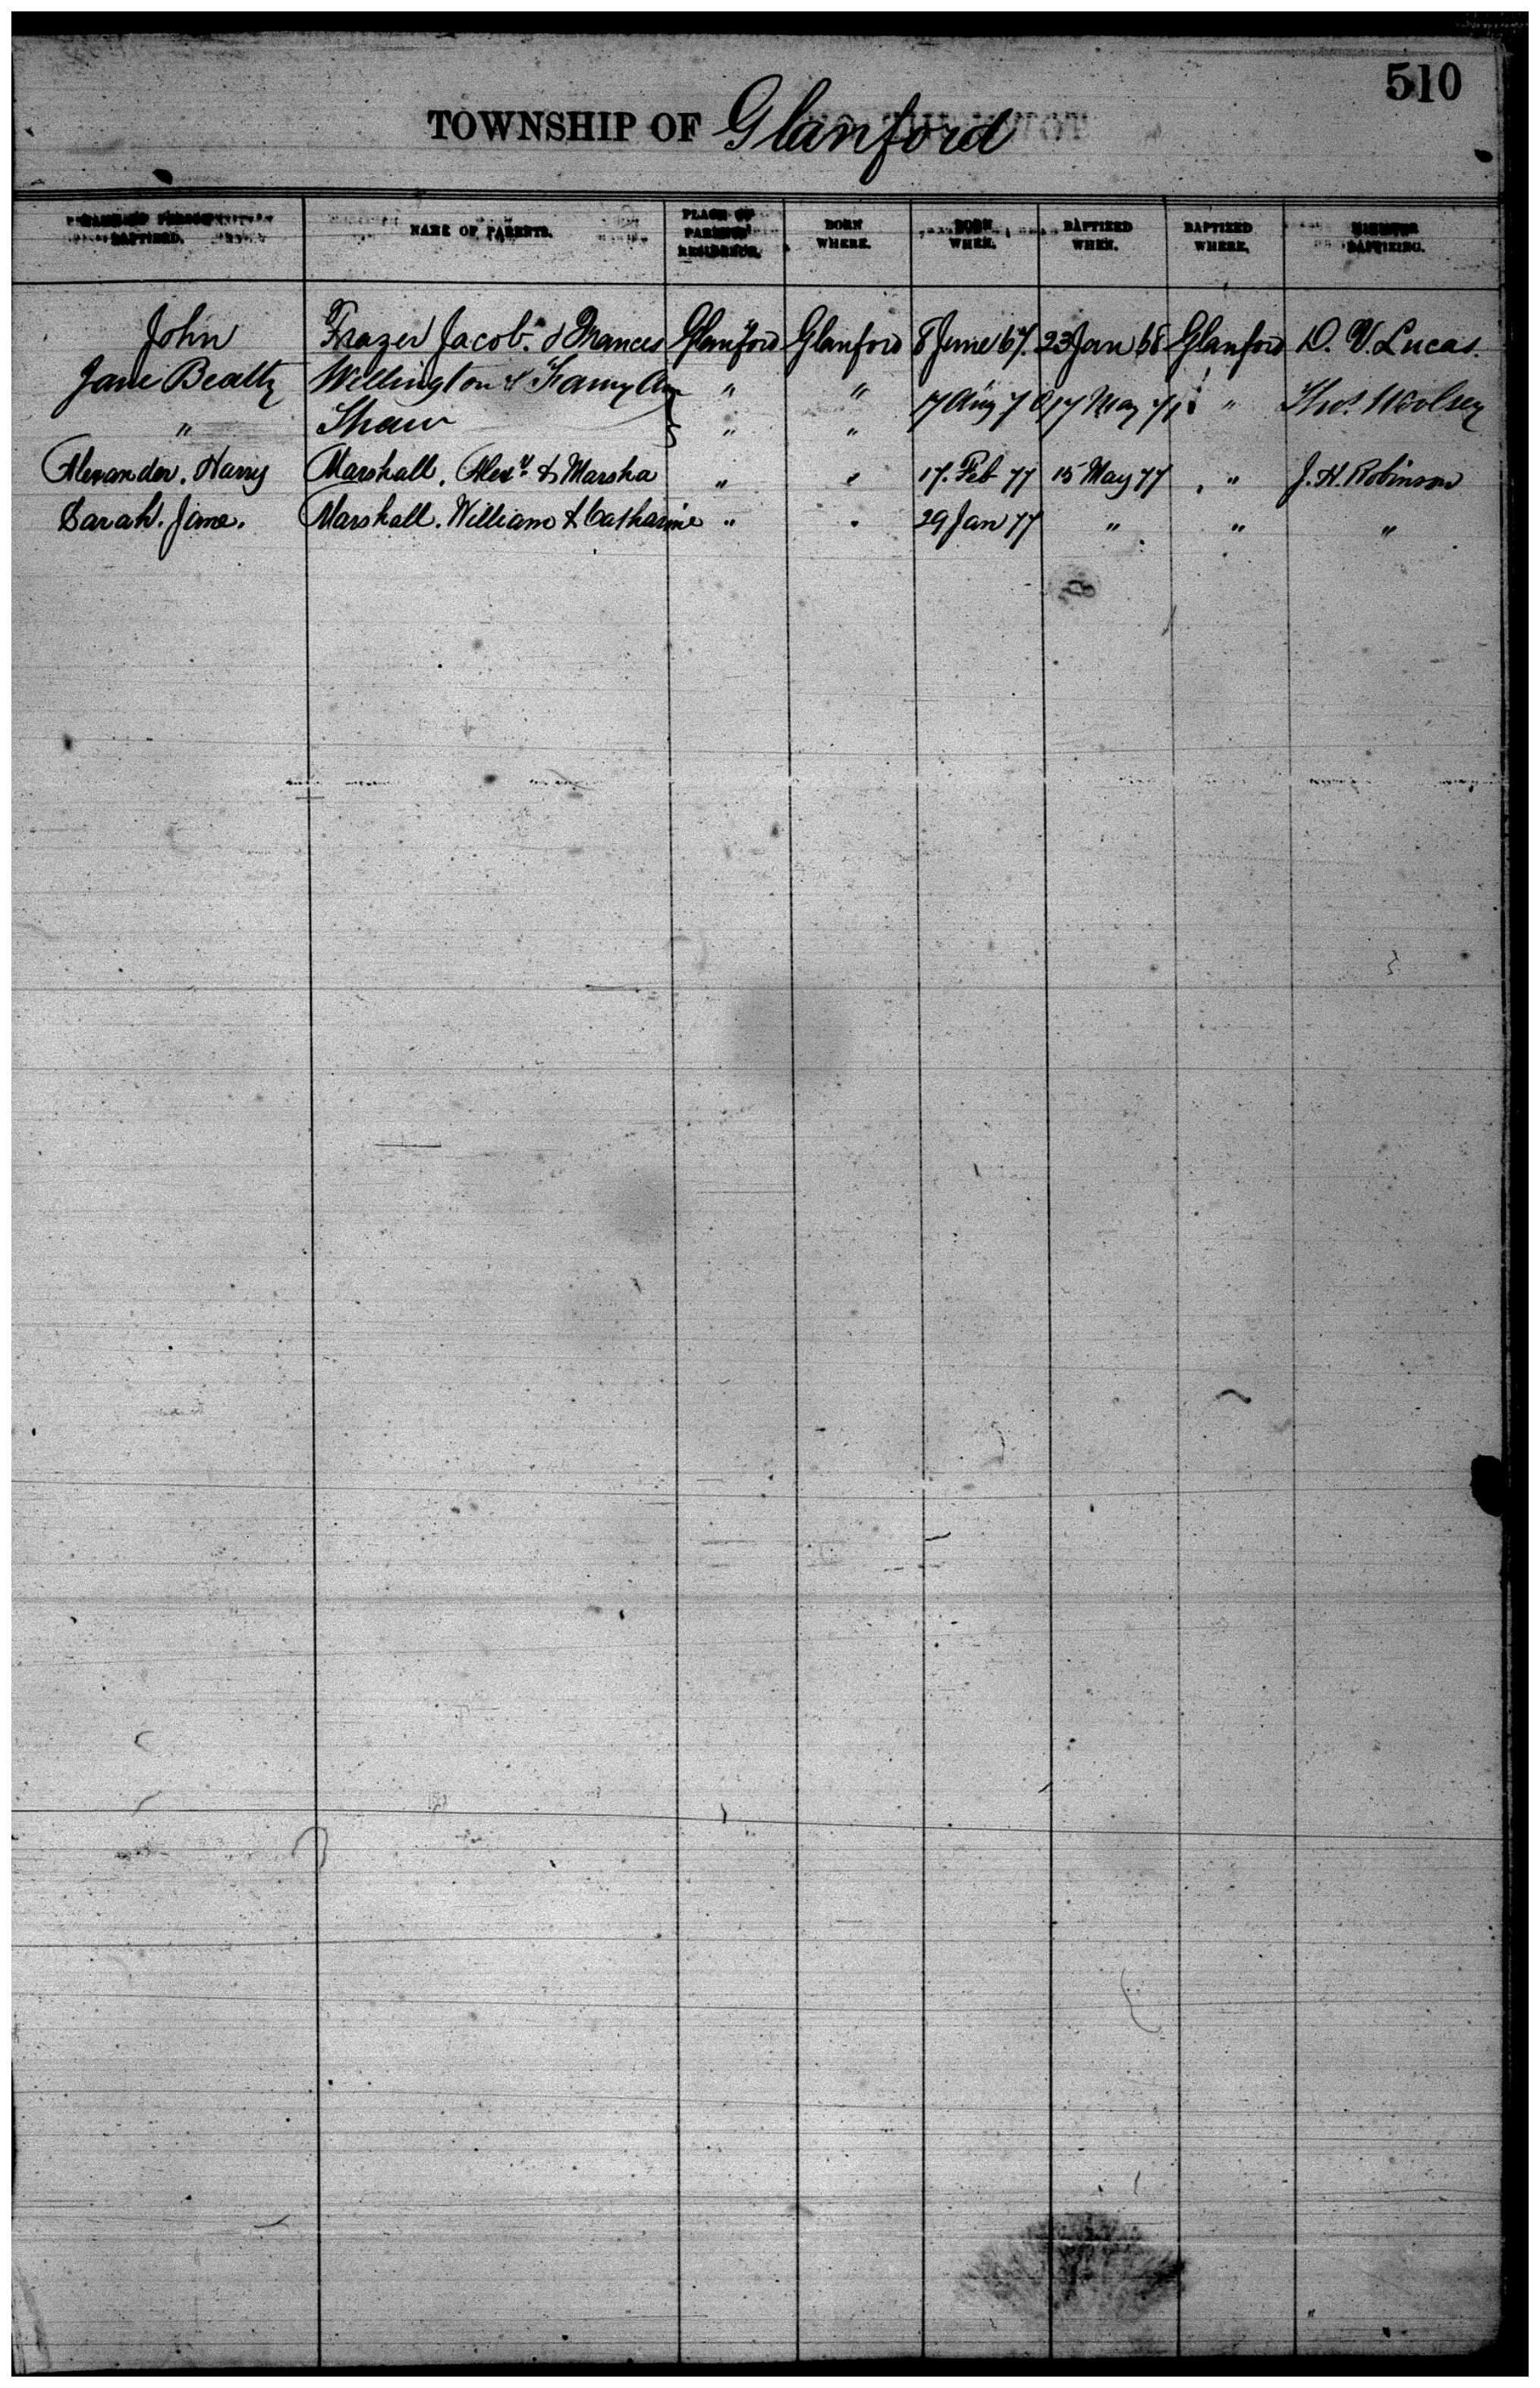 510
TOWNSHIP OF Glanford
NAME OF PERSON BAPTIZED. NAME OF PARENTS. PLACE OF PARENTS' RESIDENCE. BORN WHERE. BORN WHEN. BAPTIZED WHEN. BAPTIZED WHERE. MINISTER BAPTIZING.
John Frazer Jacob. & Frances Glanford Glanford 8 June 67. 23 Jan 68 Glanford D. V. Lucas.
Jane Beatty Wellington & Fanny Ann " " 17 Aug 70 17 May 71 " Thos. Woolsey
" Shaw " "
Alexander. Harry Marshall. Alexr. & Marsha " " 17. Feb 77 15 May 77 " J. H. Robinson
Sarah. Jane. Marshall. William & Catharine " " 29 Jan 77 " " "